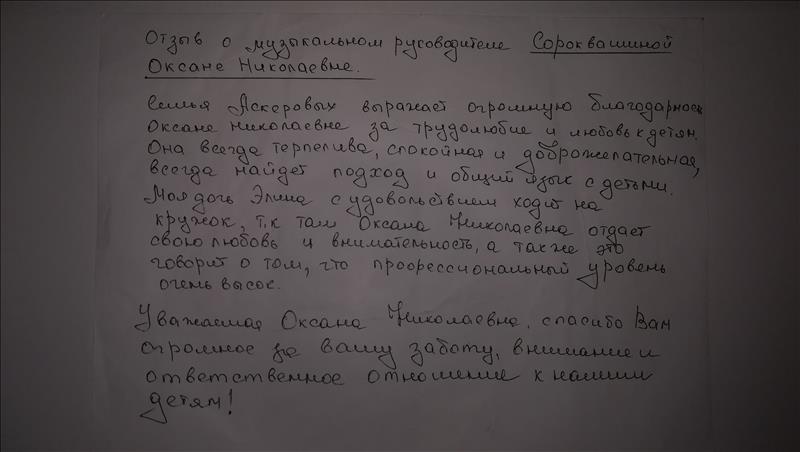 Отзыв о музыкальном руководителе Сороквашиной
Оксане Николаевне.
Семья Аскеровых выражает огромную благодарность
Оксане Николаевне за трудолюбие и любовь к детям.
Она всегда терпелива, спокойная и доброжелательная,
всегда найдет подход и общий язык с детьми.
Моя дочь Элина с удовольствием ходит на
кружок, т.к там Оксана Николаевна отдает
свою любовь и внимательность, а также это
говорит о том, что профессиональный уровень
очень высок.
Уважаемая Оксана Николаевна, спасибо Вам
огромное за вашу заботу, внимание и
ответственное отношение к нашим
детям!